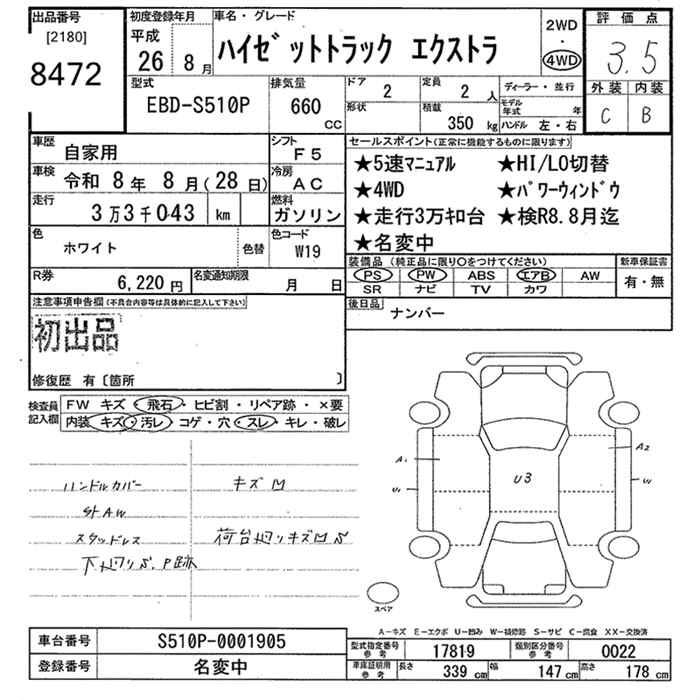 出品番号
[2180]
8472
初度登録年月
平成
26 8月
車名・グレード
ハイゼットトラック エクストラ
2WD
・
4WD
評価点
3.5
外装 内装
C B
型式
EBD-S510P
排気量
660
cc
ドア
2
定員
2 人
形状
積載
350 kg
ディーラー・並行
モデル年式 年
ハンドル 左・右
車歴
自家用
シフト
F5
車検
令和 8年 8月(28日)
冷房
AC
走行
3万3千043 km
燃料
ガソリン
色
ホワイト
色替
色コード
W19
R券
6,220円
名変通知期限
月 日
セールスポイント(正常に機能するものに限ります)
★5速マニュアル ★HI/LO切替
★4WD ★パワーウィンドウ
★走行3万キロ台 ★検R8.8月迄
★名変中
装備品(純正品に限り○をつけてください)
PS PW ABS エアB AW
SR ナビ TV カワ
新車保証書
有・無
後日品
ナンバー
注意事項申告欄(不具合内容等は具体的に記入して下さい)
初出品
修復歴 有〔箇所 〕
検査員記入欄
FW キズ・飛石・ヒビ割・リペア跡・×要
内装 キズ・汚レ・コゲ・穴・スレ・キレ・破レ
ハンドルカバー
キズ凹
外AW
スタッドレス
荷台廻りキズ凹S
下廻りS、P跡
A1
U1
U3
A2
W
スペア
A-キズ E-エクボ U-凹み W-補修跡 S-サビ C-腐食 XX-交換済
車台番号
S510P-0001905
登録番号
名変中
型式指定番号
参考
17819
類別区分番号
参考
0022
車庫証明用
参考
長さ
339 cm
幅
147 cm
高さ
178 cm